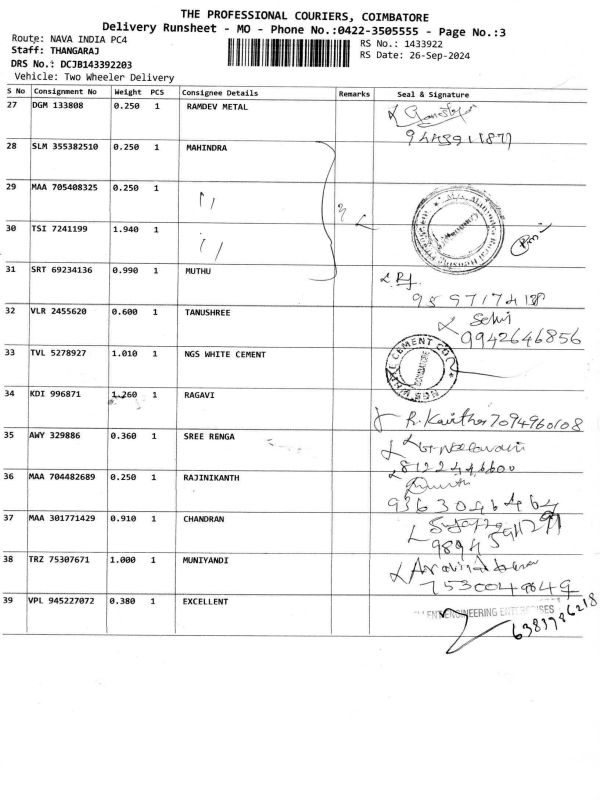 THE PROFESSIONAL COURIERS, COIMBATORE
Delivery Runsheet - MO - Phone No.:0422-3505555 - Page No.:3
Route: NAVA INDIA PC4
RS No.: 1433922
Staff: THANGARAJ
RS Date: 26-Sep-2024
DRS No.: DCJB143392203
Vehicle: Two Wheeler Delivery
S No Consignment No Weight PCS Consignee Details Remarks Seal & Signature
27 DGM 133808 0.250 1 RAMDEV METAL
28 SLM 355382510 0.250 1 MAHINDRA
29 MAA 705408325 0.250 1 "
30 TSI 7241199 1.940 1 "
31 SRT 69234136 0.990 1 MUTHU
32 VLR 2455620 0.600 1 TANUSHREE
9942646856
33 TVL 5278927 1.010 1 NGS WHITE CEMENT
NGS WHITE CEMENT CO
COIMBATORE
34 KDI 996871 1.260 1 RAGAVI
7094960108
35 AWY 329886 0.360 1 SREE RENGA
36 MAA 704482689 0.250 1 RAJINIKANTH
37 MAA 301771429 0.910 1 CHANDRAN
38 TRZ 75307671 1.000 1 MUNIYANDI
39 VPL 945227072 0.380 1 EXCELLENT
ENGINEERING ENTERPRISES
6383786218